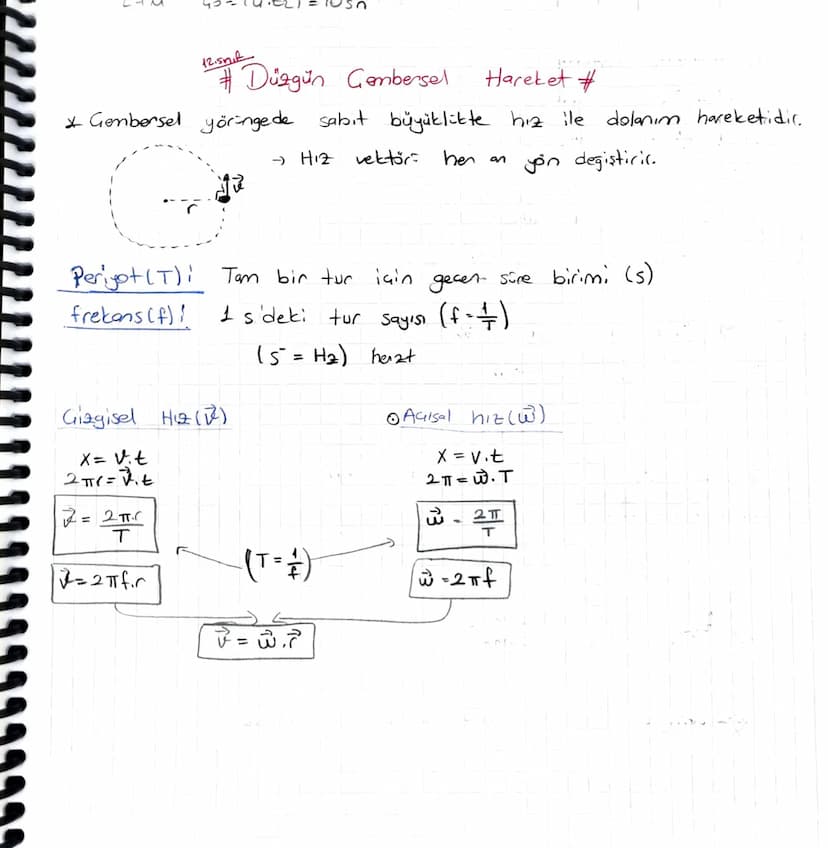 12.sınıf
# Düzgün Çembersel Hareket #
* Çembersel yörüngede sabit büyüklükte hız ile dolanım hareketidir.
→ Hız vektörü her an yön değiştirir.
v⃗
r
Periyot(T): Tam bir tur için geçen süre birimi (s)
frekans(f): 1 s'deki tur sayısı (f = 1/T)
(s⁻ = Hz) hertz
Çizgisel Hız(v⃗)
x = v.t
2πr = v⃗.t
v⃗ = 2π.r/T
v⃗ = 2πf.r
⊙ Açısal hız(w⃗)
x = v.t
2π = w⃗.T
w⃗ = 2π/T
w⃗ = 2πf
(T = 1/f)
v⃗ = w⃗.r⃗